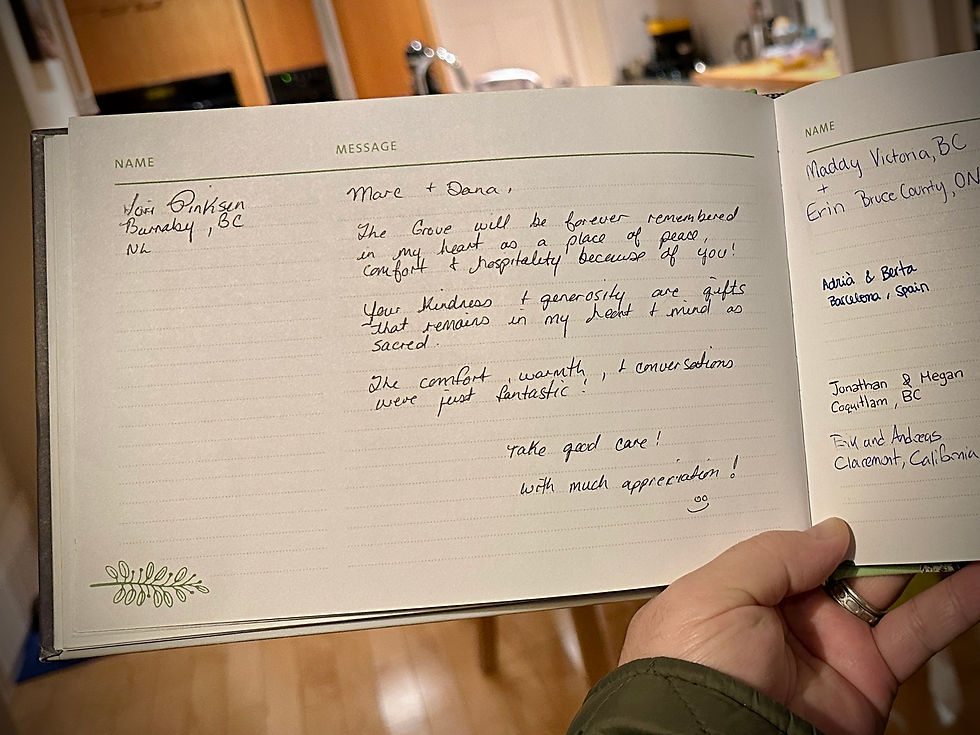 NAME
MESSAGE
Tori Pinksen
Burnaby, BC
NL
Marc + Dana,
The Grove will be forever remembered
in my heart as a place of peace,
comfort & hospitality because of you!
Your kindness + generosity are gifts
that remains in my heart + mind as
sacred.
The comfort, warmth, + conversations
were just fantastic!
Take good care!
with much appreciation!
NAME
Maddy Victoria, BC
+
Erin Bruce County, ON
Adrià & Berta
Barcelona, Spain
Jonathan & Megan
Coquitlam, BC
Erik and Andreas
Claremont, California